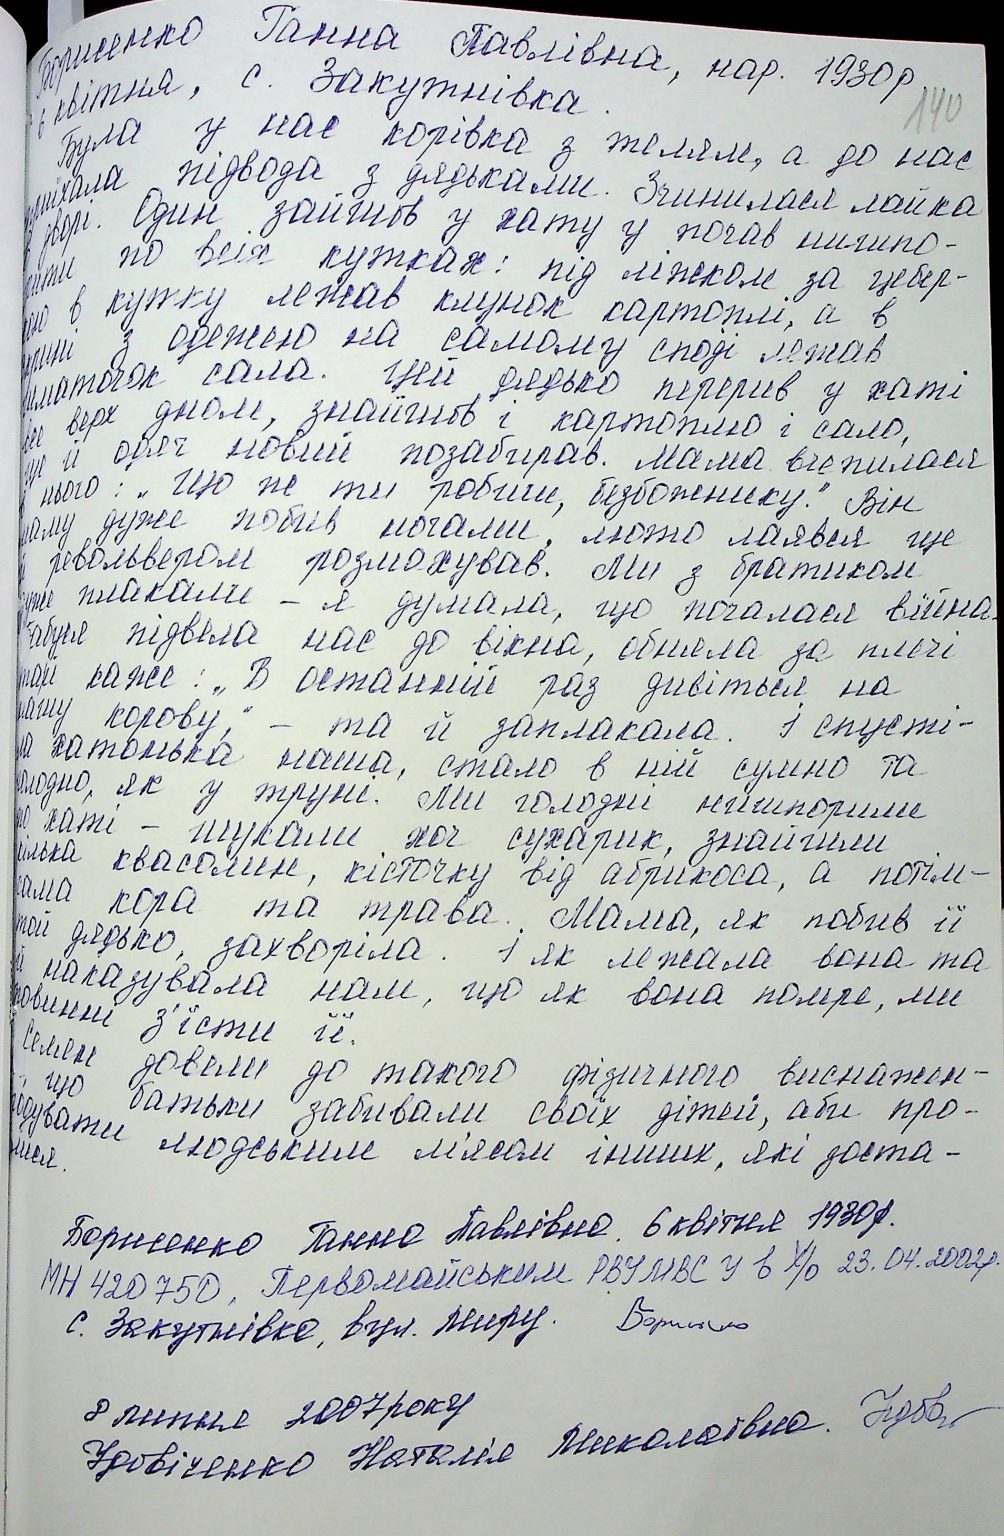 Борисенко Ганна Павлівна, нар. 1930р
6 квітня, с. Закутнівка.
140
Була у нас корівка з телям, а до нас
приїхала підвода з дядьками. Зчинилася лайка
в дворі. Один зайшов у хату у почав нишпо-
рити по всіх кутках: під ліжком за цебер-
кою в кутку лежав клунок картоплі, а в
скрині з одежею на самому споді лежав
шматочок сала. Цей дядько перерив у хаті
все верх дном, знайшов і картоплю і сало,
ще й одяг новий позабирав. Мама вчепилася
в нього: „Що ж ти робиш, безбожнику." Він
маму дуже побив ногами, люто лаявся ще
й револьвером розмахував. Ми з братиком
дуже плакали – я думала, що почалася війна.
Бабуся підвела нас до вікна, обняла за плечі
та й каже: „В останній раз дивіться на
нашу корову," – та й заплакала. І спусті-
ла хатонька наша, стало в ній сумно та
холодно, як у труні. Ми голодні нишпорили
по хаті – шукали хоч сухарик, знайшли
кілька квасолин, кісточку від абрикоса, а потім –
сама кора та трава. Мама, як побив її
той дядько, захворіла. І як лежала вона та
й наказувала нам, що як вона помре, ми
повинні з'їсти її.
Селян довели до такого фізичного виснажен-
що батьки забивали своїх дітей, аби про-
годувати людським м'ясом інших, які зоста-
лися.
Борисенко Ганна Павлівна. 6 квітня 1930р.
МН 420750, Первомайським РВУМВС У в Х/о 23.04.2002р.
с. Закутнівка, вул. Миру.
8 липня 2007 року
Удовіченко Наталія Миколаївна.